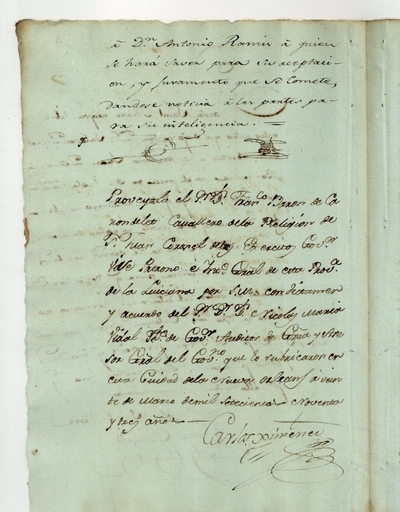 à Dn. Antonio Ramis à quien
se hará saver para su aceptaci-
on, y juramento que se Comete,
dandose noticia à las partes pa-
ra su inteligencia. —
Proveyolo el Sor. Dn. Franco. Baron de Ca
rondelet Cavallero de la Religion de
Sn. Juan Coronel de los Rs. Exercitos Govr.
Vice Patrono è Inte. Gral de esta Prova.
de la Luiciana por S.M. con dictamen
y acuerdo del Sor. Dn. Nicolas Maria
Vidal The. de Govr. Auditor de Grra y Ase
sor Gral del Govno. que lo rubricaron en
esta Ciudad de la Nueva Orleans à vein
te de Marzo de mil setecientos Noventa
y tres años —
Carlos Ximenes